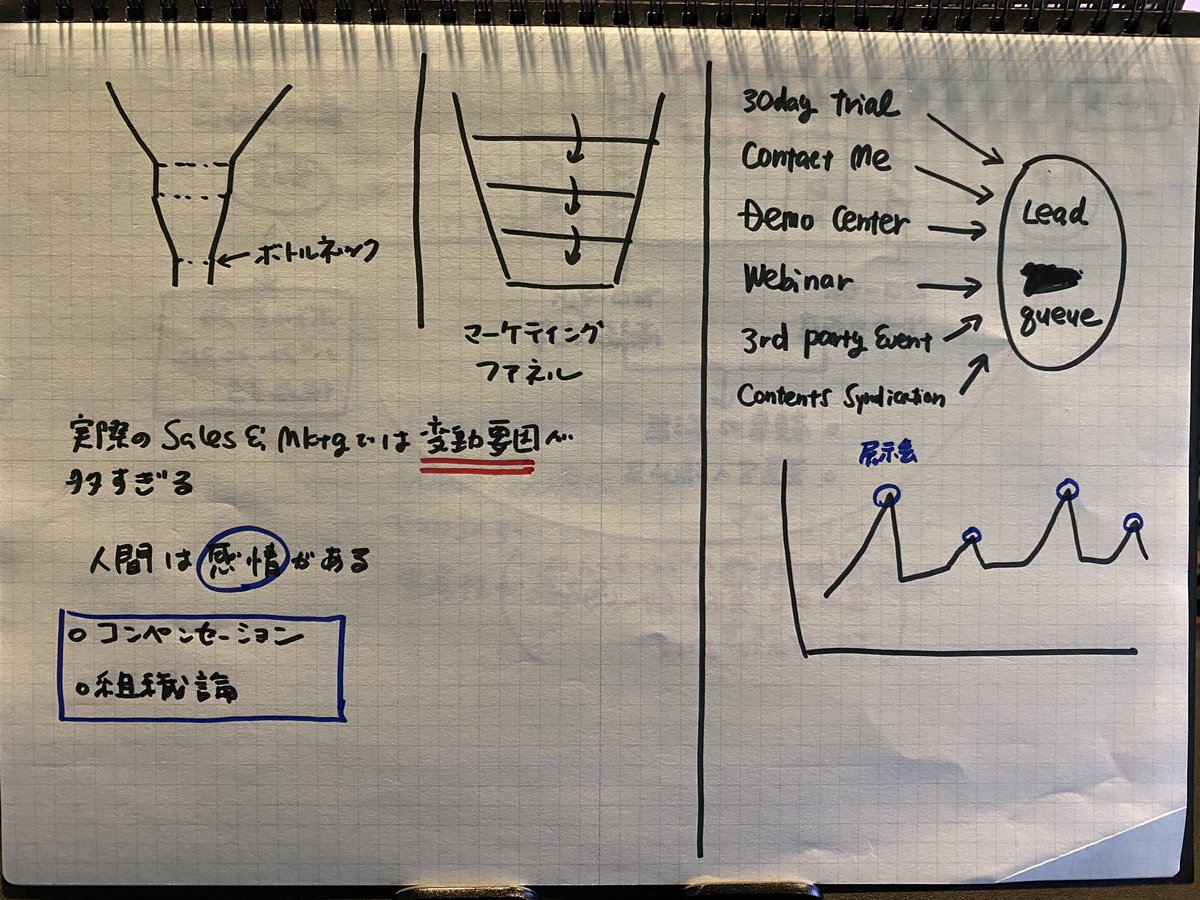 ボトルネック
マーケティング
ファネル
実際の Sales & Mktgでは変動要因が
多すぎる
人間は感情がある
○ コンペンセーション
○ 組織論
30day trial
Contact Me
Demo Center
Webinar
3rd party Event
Contents Syndication
Lead
queue
展示会